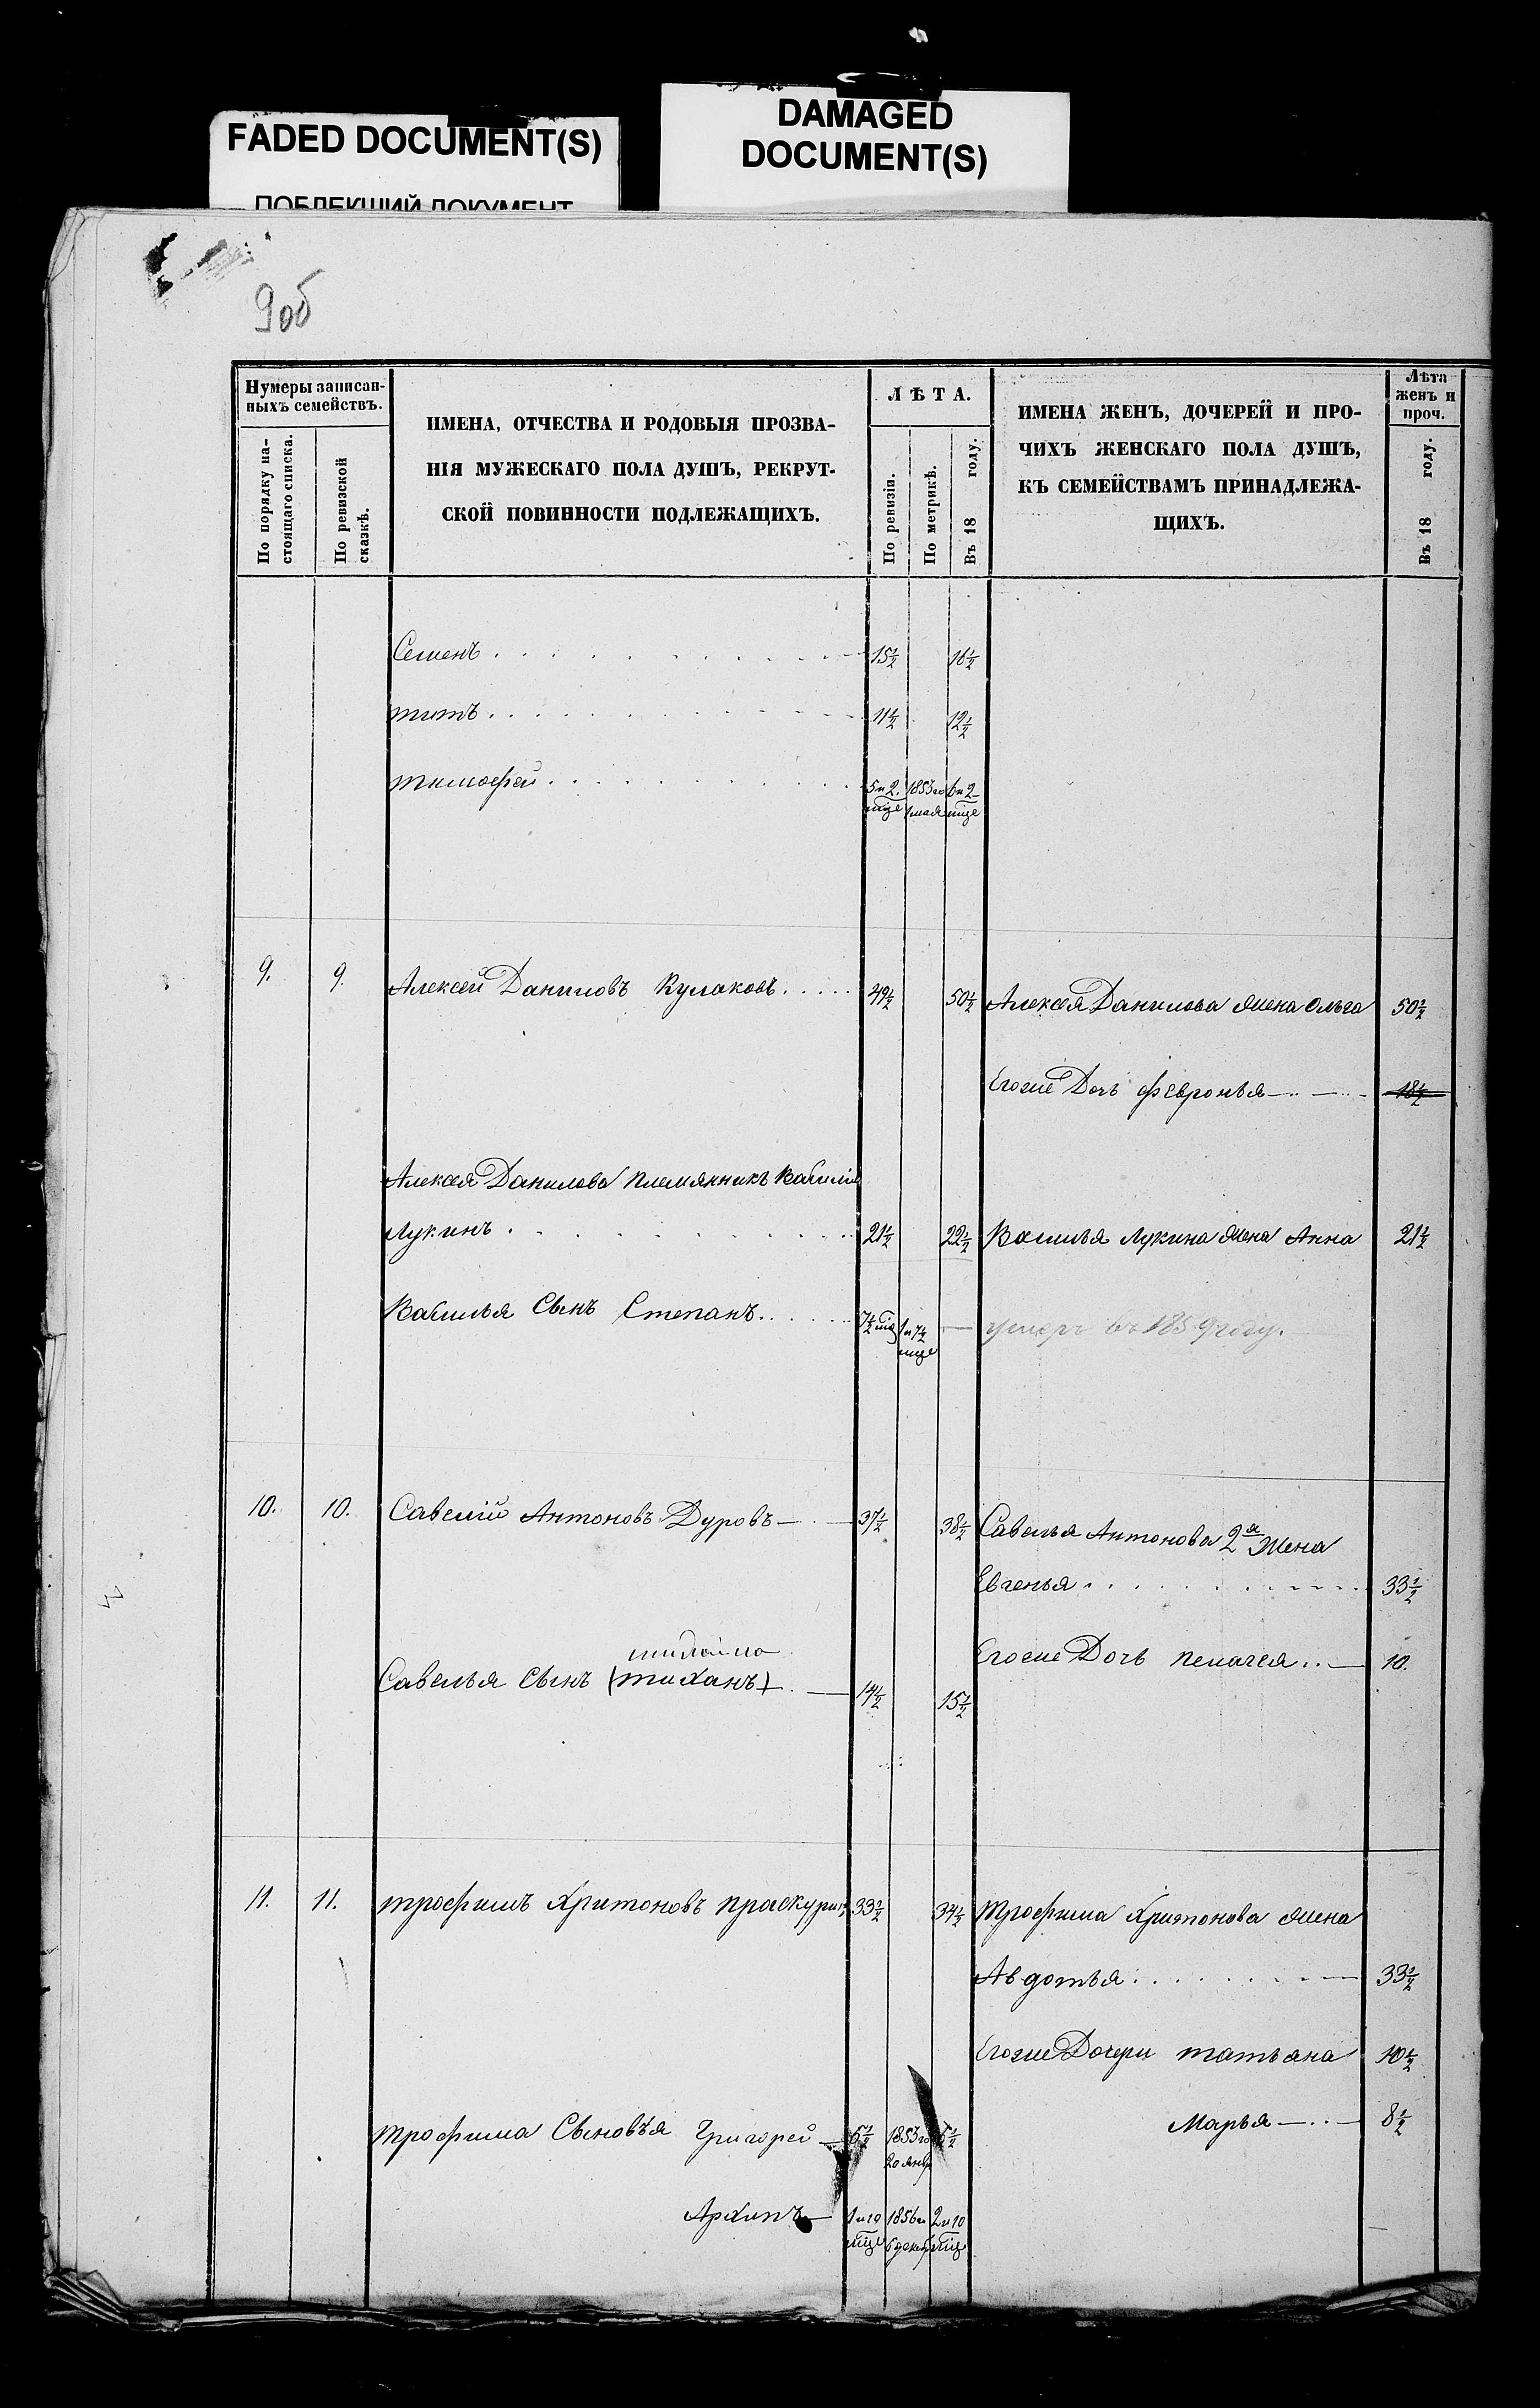 FADED DOCUMENT(S)
ПОБЛЕКШИЙ ДОКУМЕНТ
DAMAGED
DOCUMENT(S)
9об
Нумеры записан-
ныхъ семействъ.
По порядку на-
стоящаго списка.
По ревизской
сказкѣ.
ИМЕНА, ОТЧЕСТВА И РОДОВЫЯ ПРОЗВА-
НІЯ МУЖЕСКАГО ПОЛА ДУШЪ, РЕКРУТ-
СКОЙ ПОВИННОСТИ ПОДЛЕЖАЩИХЪ.
ЛѢТА.
По ревизіи.
По метрикѣ.
Въ 18 году.
ИМЕНА ЖЕНЪ, ДОЧЕРЕЙ И ПРО-
ЧИХЪ ЖЕНСКАГО ПОЛА ДУШЪ,
КЪ СЕМЕЙСТВАМЪ ПРИНАДЛЕЖА-
ЩИХЪ.
Лѣта
женъ и
проч.
Въ 18 году.
Семенъ 15½ 16½
титъ 11½ 12½
тимофей 5 и 2 мце 1853 го 1 мая 6 и 2 мце
9. 9. Алексей Даниловъ Кулаковъ 49½ 50½ Алексея Данилова жена Ольга 50½
Егоже Дочь февронья 18½
Алексея Данилова племянникъ Василій
Лукинъ 21½ 22½ Василья Лукина жена Анна 21½
Василья Сынъ Степанъ 7½ мце 1 и 7½ мце — умеръ въ 1859 году.
10. 10. Савелій Антоновъ Дуровъ 37½ 38½ Савелья Антонова 2я Жена
Евгенья 33½
Егоже Дочь пелагея 10.
Савелья Сынъ (тиханъ) 14½ 15½
11. 11. трофимъ Хритоновъ праскурин 33½ 34½ Трофима Хритонова жена
Авдотья 33½
Егоже Дочери татьяна 10½
Марья 8½
трофима Сыновья Григорей 5½ 1853 го 20 янв 6½
Архипъ 1 и 10 мце 1856 го 6 декаб 2 и 10 мце